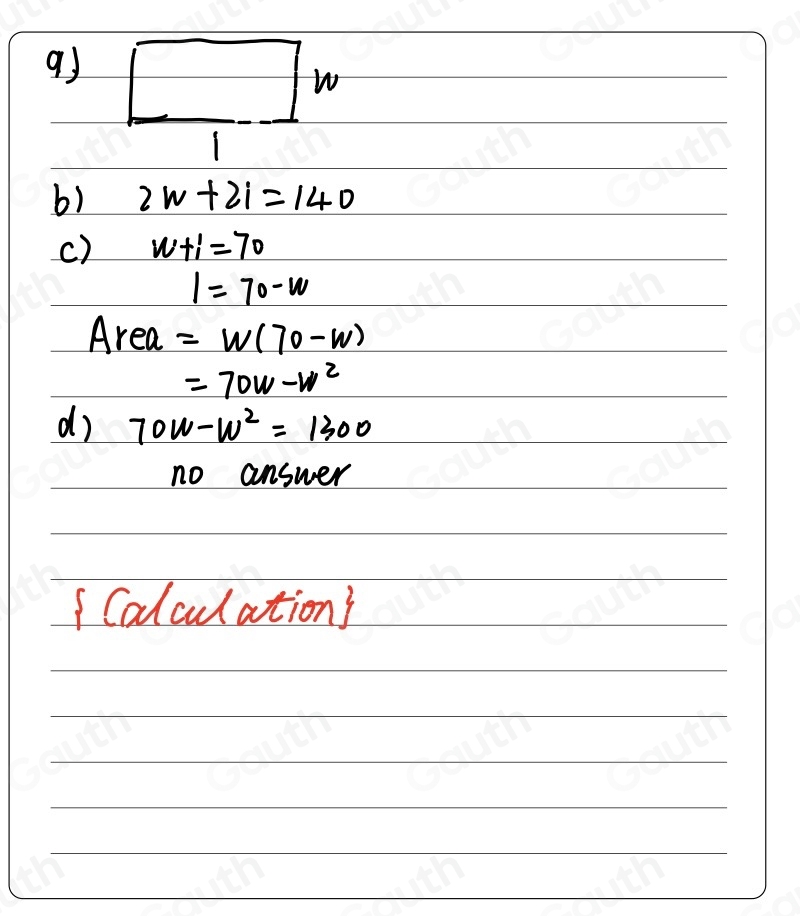 a)
w
l
b) 2w+2l=140
c) w+l=70
l=70-w
Area = w(70-w)
= 70w-w²
d) 70w-w² = 1300
no answer
{Calculation}
Gauth